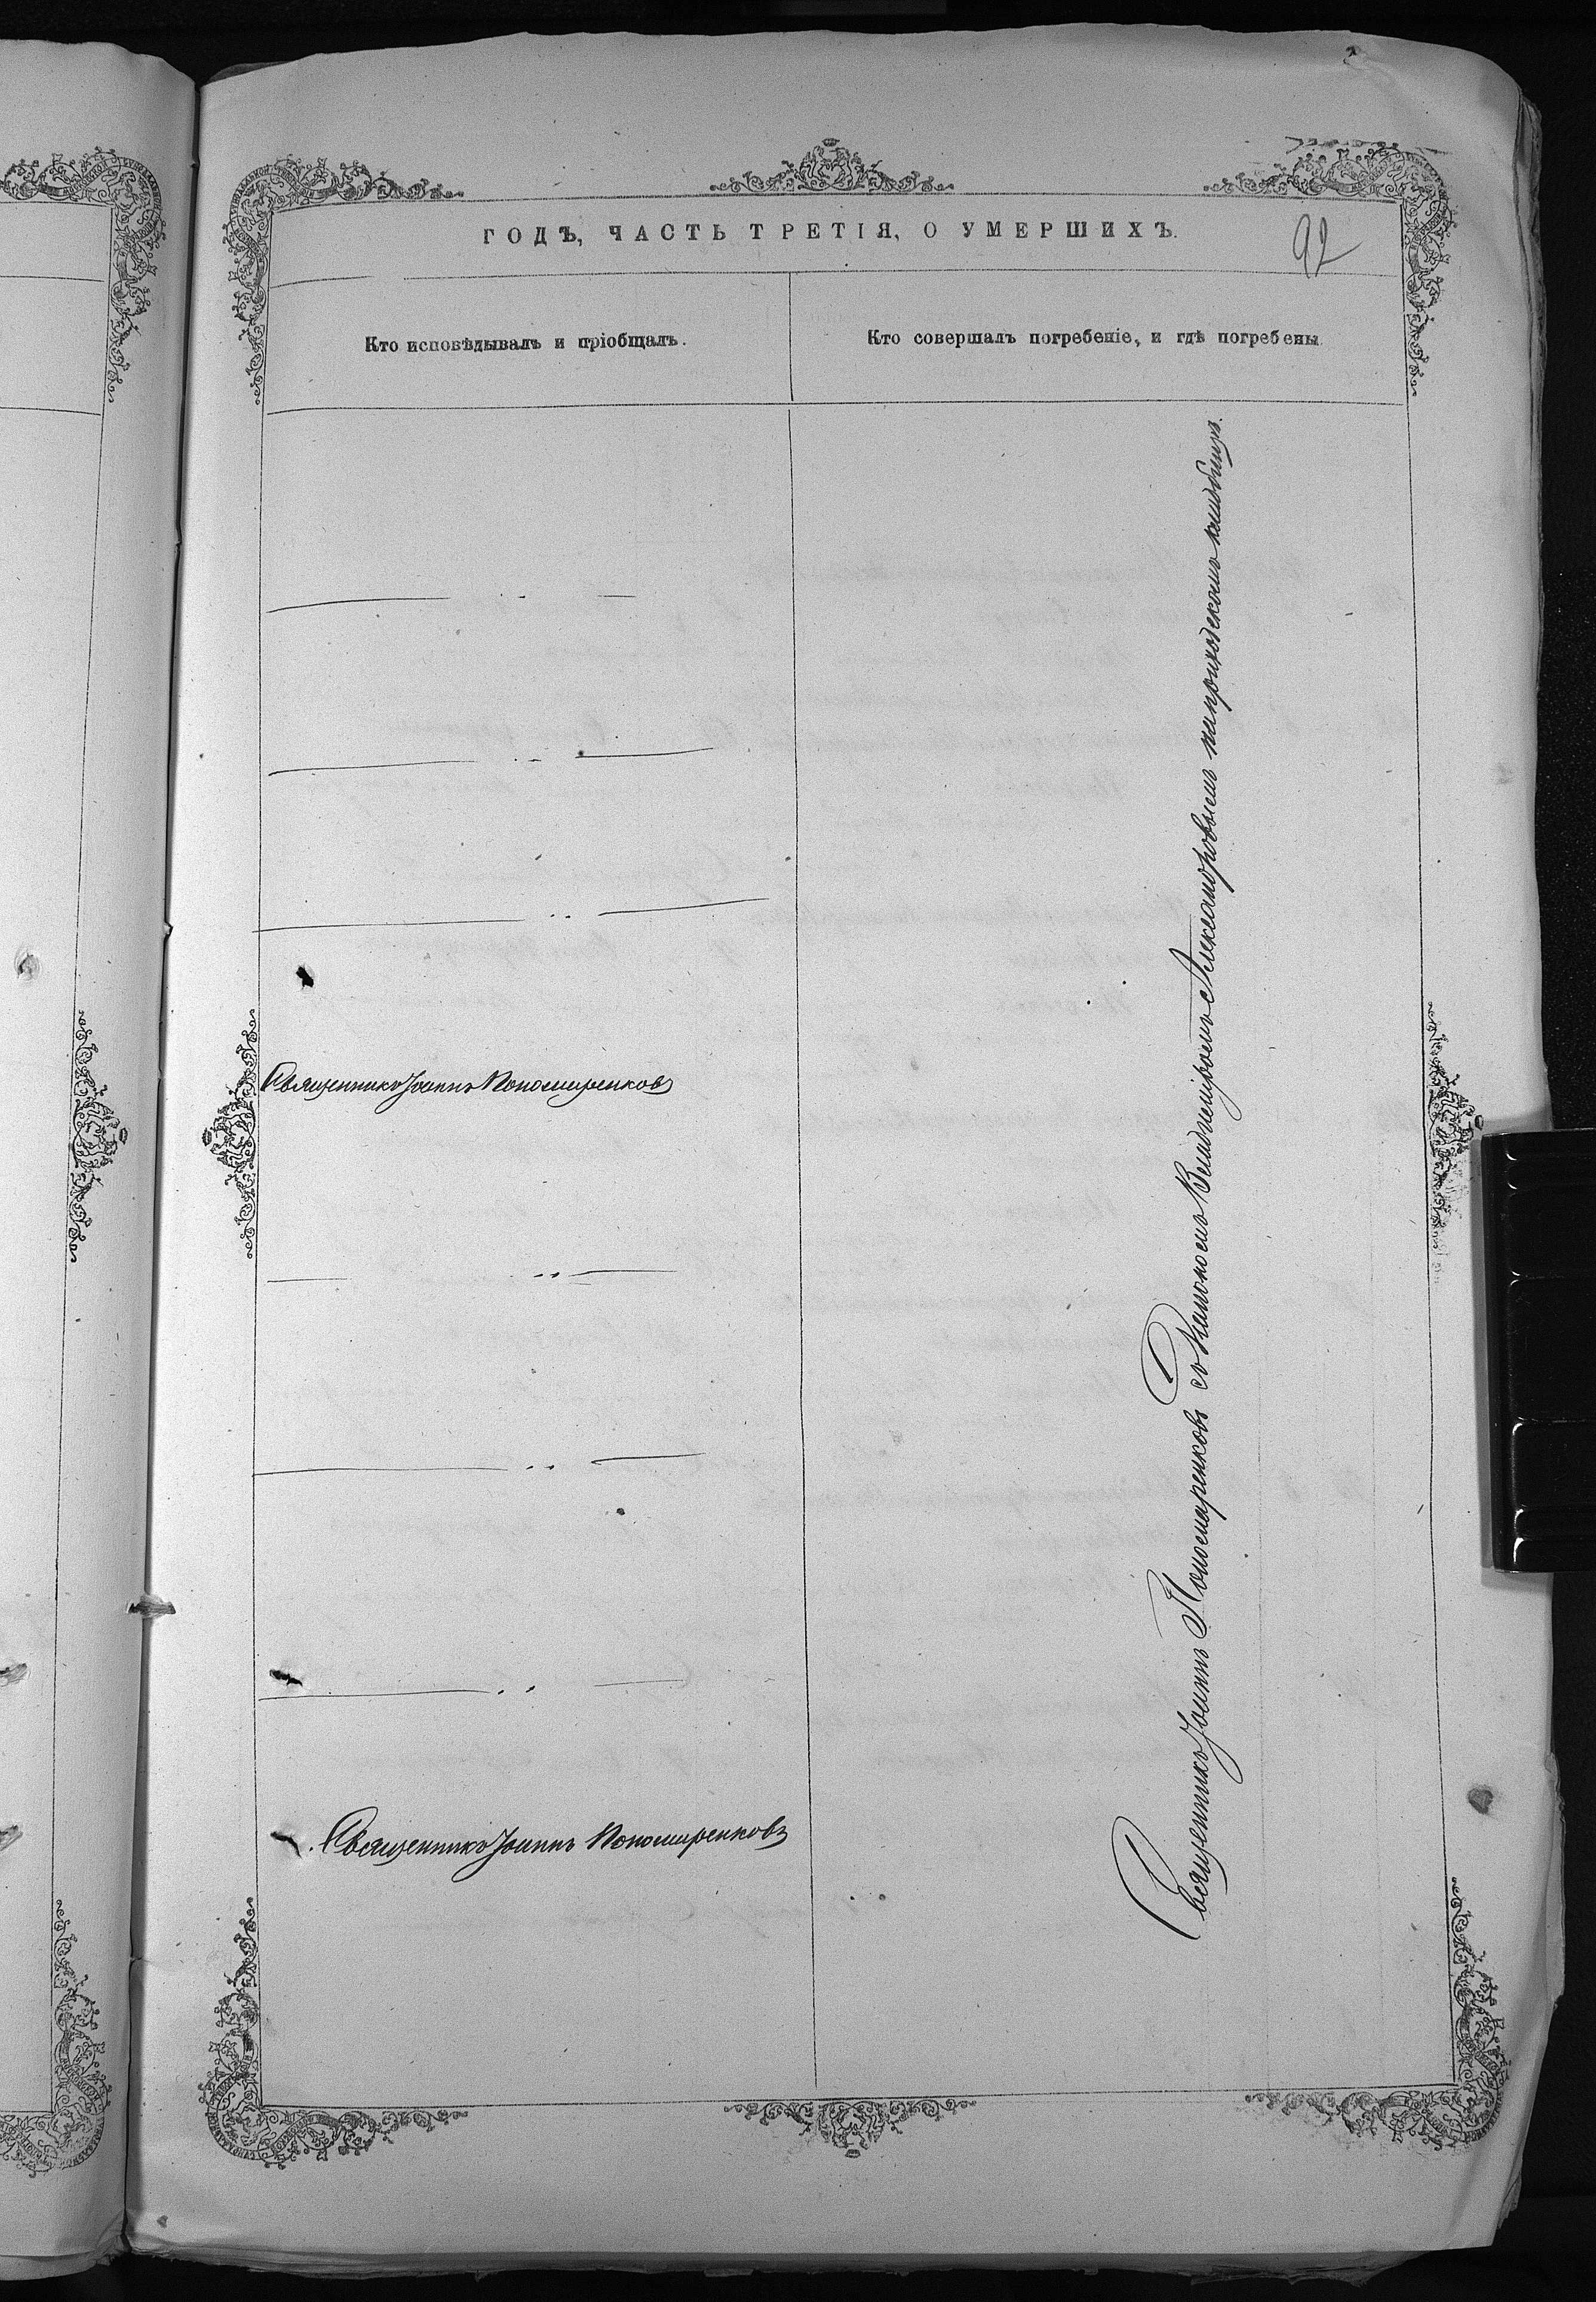 ГОДЪ, ЧАСТЬ ТРЕТІЯ, О УМЕРШИХЪ.
92
Кто исповѣдывалъ и пріобщалъ.
Кто совершалъ погребеніе, и гдѣ погребены
Священникъ Іоаннъ Пономаренковъ
Священникъ Іоаннъ Пономаренковъ
Священникъ Іоаннъ Пономаренковъ съ Дьячкомъ Владиміромъ Александровымъ на приходскомъ кладбищѣ.